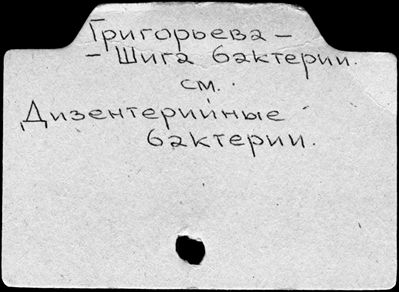 Григорьева –
– Шига бактерии.
см.
Дизентерийные
бактерии.